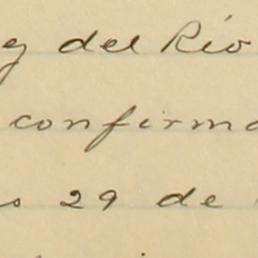 y del Río
confirma
s 29 de